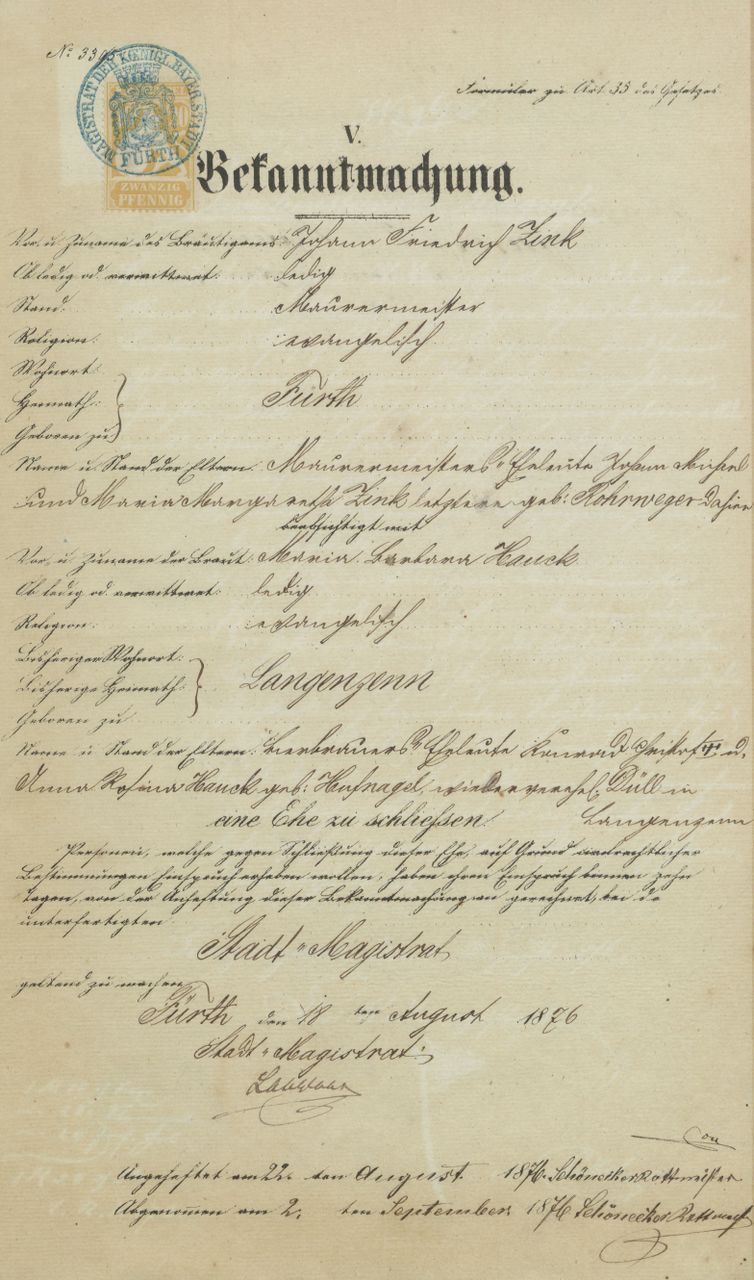 No 3395
MAGISTRAT DER KOENIGL. BAYER. STADT
FÜRTH
ZWANZIG
PFENNIG
Formular zu Art. 35 des Gesetzes.
V.
Bekanntmachung.
Vor- u. Zuname des Bräutigams: Johann Friedrich Zink
Ob ledig od. verwittwet: ledig
Stand: Maurermeister
Religion: evangelisch
Wohnort:
Heimath: Fürth
Geboren zu
Name u. Stand der Eltern: Maurermeisters-Eheleute Johann Michael
und Maria Margaretha Zink letztere geb: Rohrweger Dahier
beabsichtigt mit
Vor- u. Zuname der Braut: Maria Barbara Hauck
Ob ledig od. verwittwet: ledig
Religion: evangelisch
Bisheriger Wohnort:
Bisherige Heimath: Langenzenn
Geboren zu
Name u. Stand der Eltern: Bierbrauers-Eheleute Konrad Christof † u.
Anna Rosina Hauck geb: Hufnagel, wiederverehel. Düll in
eine Ehe zu schließen. Langenzenn
Personen, welche gegen Schließung dieser Ehe, auf Grund civilrechtlicher
Bestimmungen Einspruch erheben wollen, haben ihren Einspruch binnen zehn
Tagen, von der Anheftung dieser Bekanntmachung an gerechnet, bei de
unterfertigten
Stadt-Magistrat
geltend zu machen
Fürth den 18 ten August 1876
Stadt-Magistrat:
Angeheftet am 22. ten August 1876. Schönecker Rottmeister
Abgenommen am 2. ten September 1876 Schönecker Rottmeist